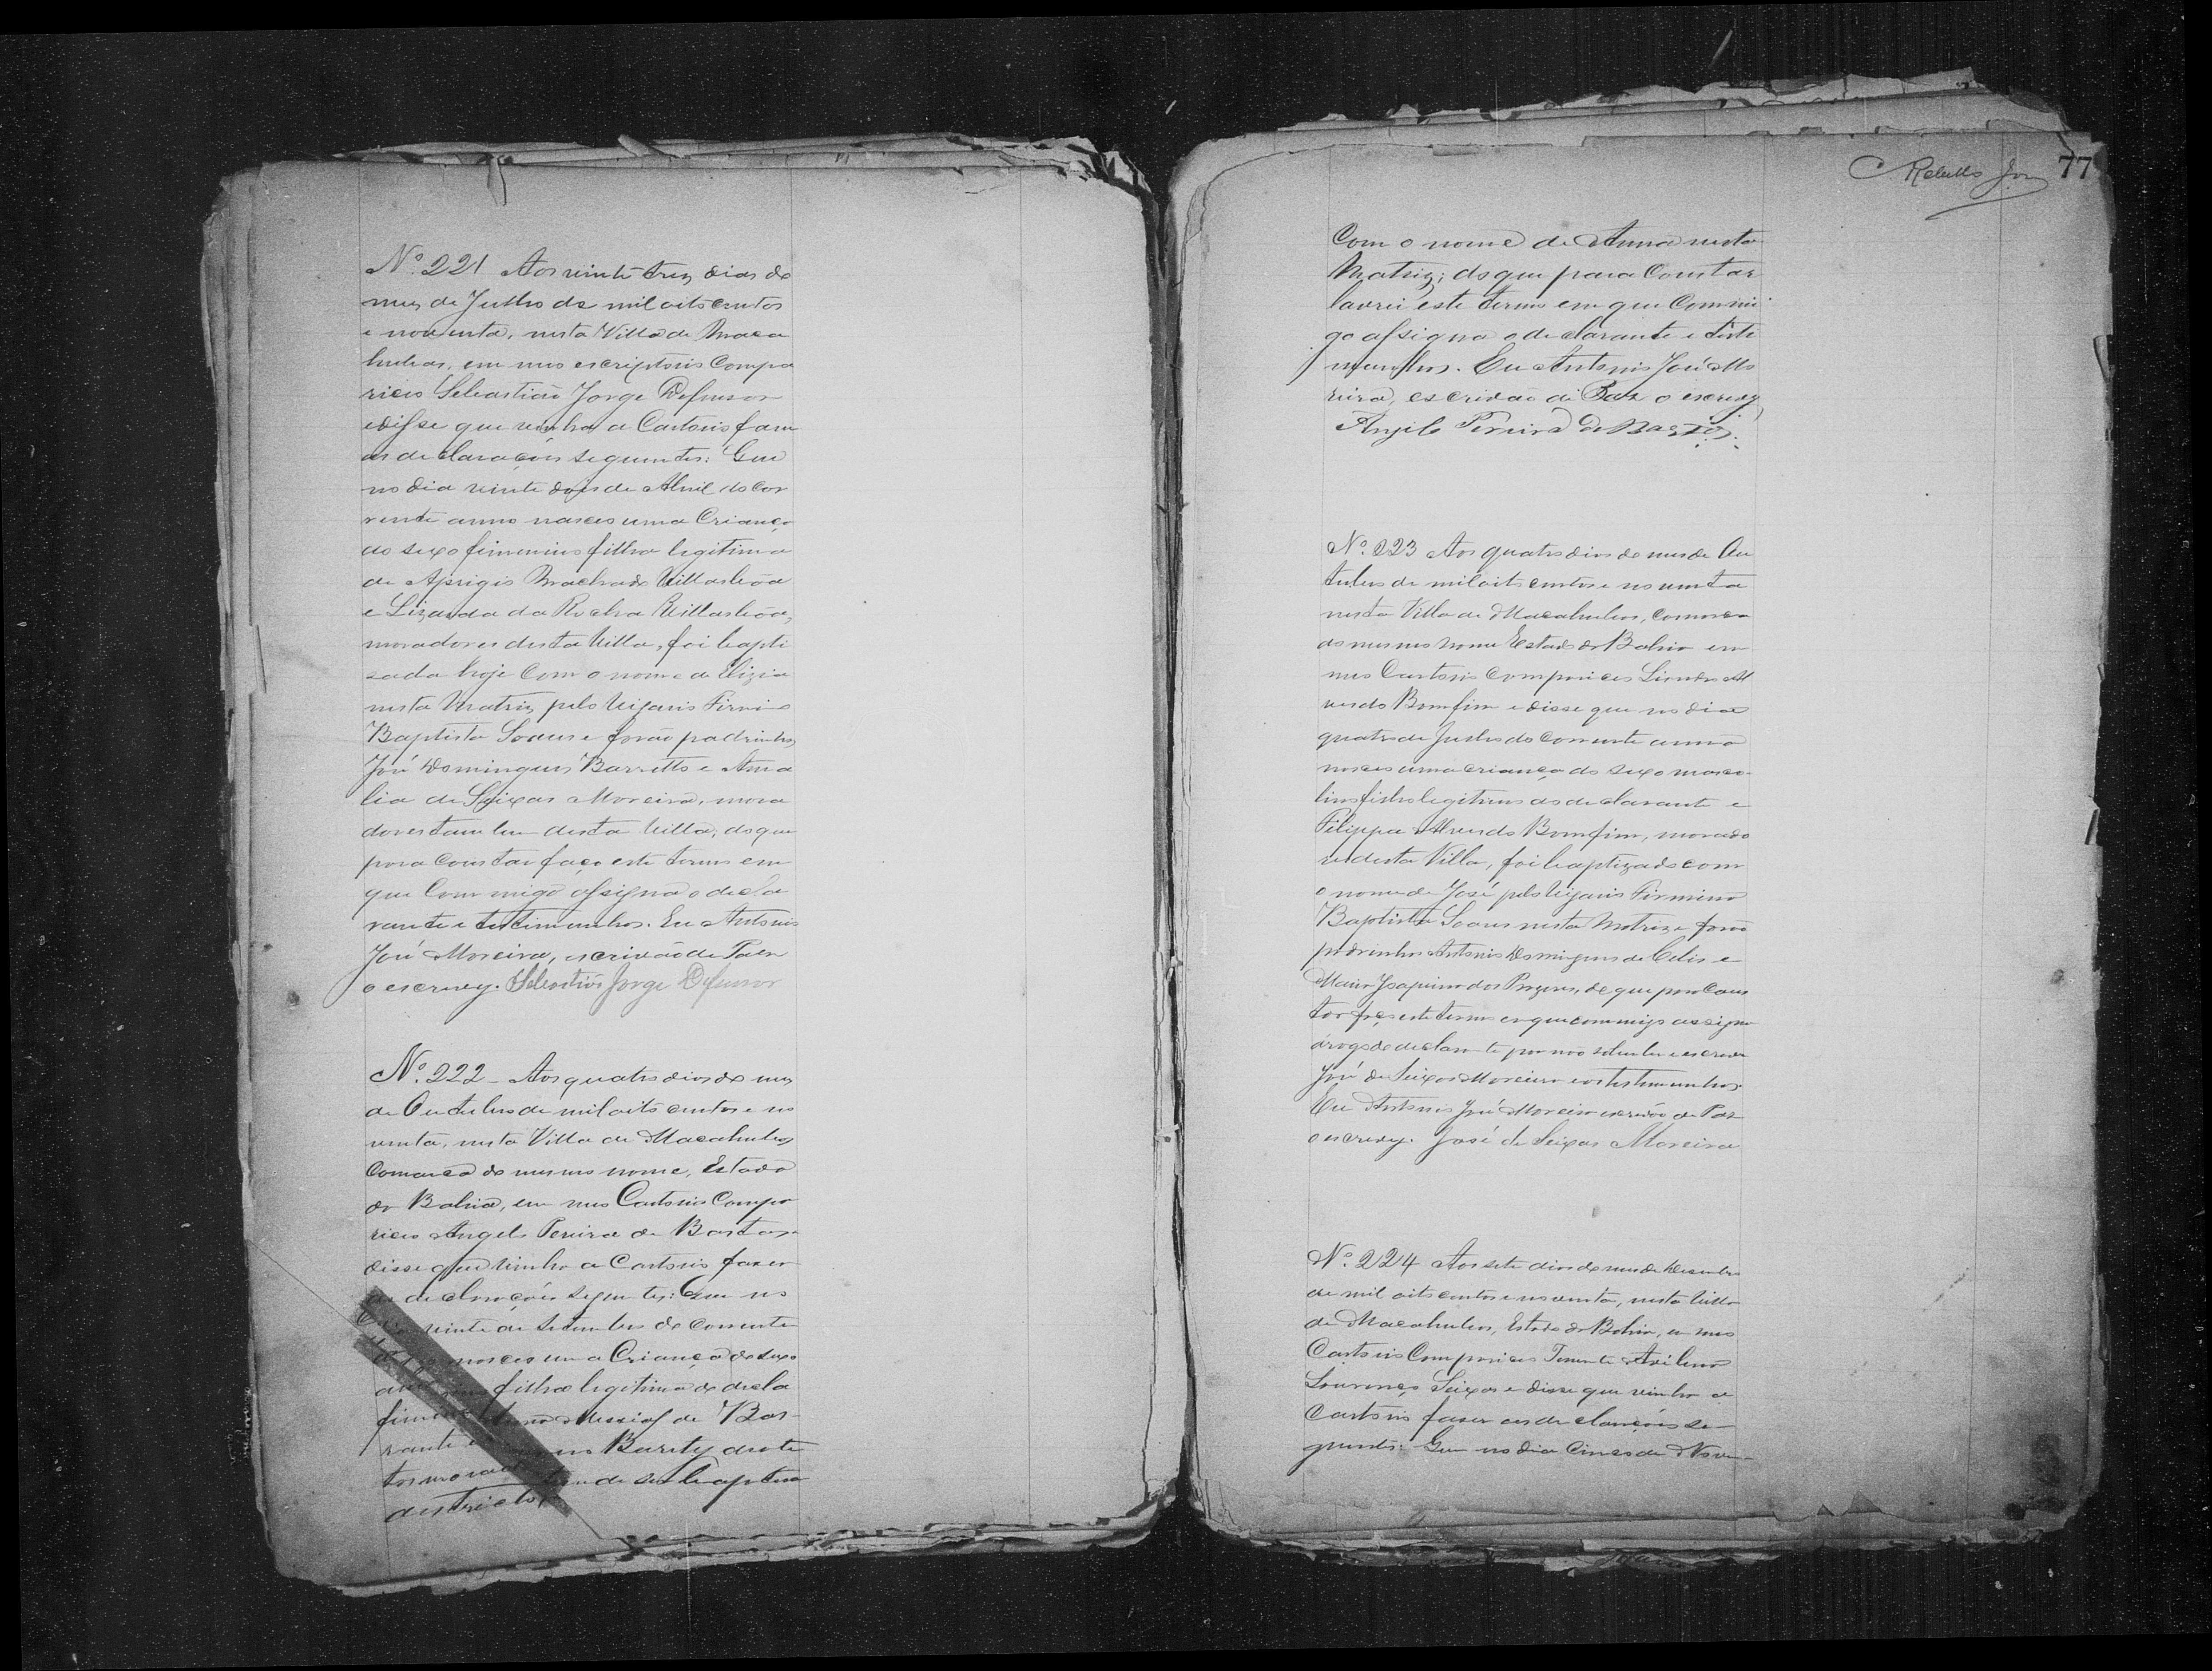 Nº 221 Aos vinte trez dias do
mez de Julho de mil oito centos
e noventa, nesta Villa de Maca
hubas, em meo escriptorio compa
riceo Sebastião Jorge Defensor
e disse que vinha a Cartorio faser
as declarações seguintes: Que
no dia vinte dois de Abril do cor
rente anno nasceo uma Criança
do sexo femenino filha legitima
de Aprigio Machado Villasbôas
e Lizarda da Rocha Villasbôas,
moradores desta Villa, foi bapti
sada hoje com o nome de Elizia
nesta Matriz pelo Vigario Firmino
Baptista Soares e forão padrinhos
José Domingues Barretto e Ama
lia de Seixas Moreira, mora
dores tambem desta Villa, do que
para constar faço este termo em
que commigo assigna o decla
rante e testimunhas. Eu Antonio
José Moreira, escrivão de Paz
o escrevy. Sebastião Jorge Defensor
Nº 222 - Aos quatro dias do mez
de Outubro de mil oito centos e no
venta, nesta Villa de Macahubas
Comarca do mesmo nome, Estado
da Bahia, em meo Cartorio compa
riceo Angelo Pereira de Bastos e
disse que vinha a Cartorio faser
as declarações seguintes: Que no
dia vinte de Setembro do corrente
nasceo uma Criança do sexo
filha legitima do decla
Messias de Bas-
rante Barity deste
tos morad de ser baptisa
districto
77
Com o nome de Anna nesta
Matriz; do que para constar
lavrei este termo em que commi
go assigna o declarante e teste
munhas. Eu Antonio José Mo
reira, escrivão de Paz o escrevy
Angelo Pereira de Bastos
Nº 223 Aos quatro dias do mez de Ou
tubro de mil oito centos e noventa
nesta Villa de Macahubas, comarca
do mesmo nome Estado da Bahia em
meo Cartorio compariceo Liandro Al
ves do Bomfim e disse que no dia
quatro de Junho do corrente anno
nasceo uma criança do sexo mascu
lino filho legitimo do declarante e
Filippa Alves do Bomfim, morado
res desta Villa, foi baptizado com
o nome de José pelo Vigario Firmino
Baptista Soares nesta Matriz e forão
padrinhos Antonio Domingues de Celis e
Maria Joaquina dos Prazeres, do que para cons
tar faço este termo em que commigo assigna
á rogo do declarante por não saber ler e escrever
José de Seixas Moreira e os testimunhas.
Eu Antonio José Moreira escrivão de Paz
o escrevy. José de Seixas Moreira
Nº 224 Aos sete dias do mez de Desembro
de mil oito centos e noventa, nesta Villa
de Macahubas, Estado da Bahia, em meo
Cartorio compariceo Tenente Avelino
Lourenço Seixas e disse que vinha a
Cartorio faser as declarações se-
guintes: Que no dia cinco de Nove-